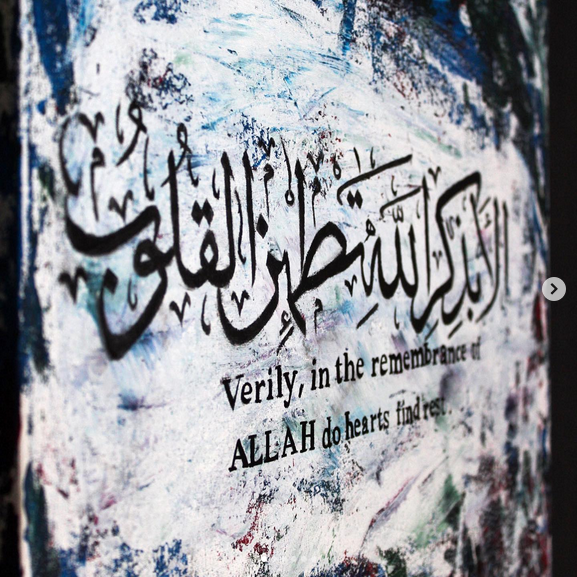 ألا بذكر الله تطمئن القلوب
Verily, in the remembrance of
ALLAH do hearts find rest.